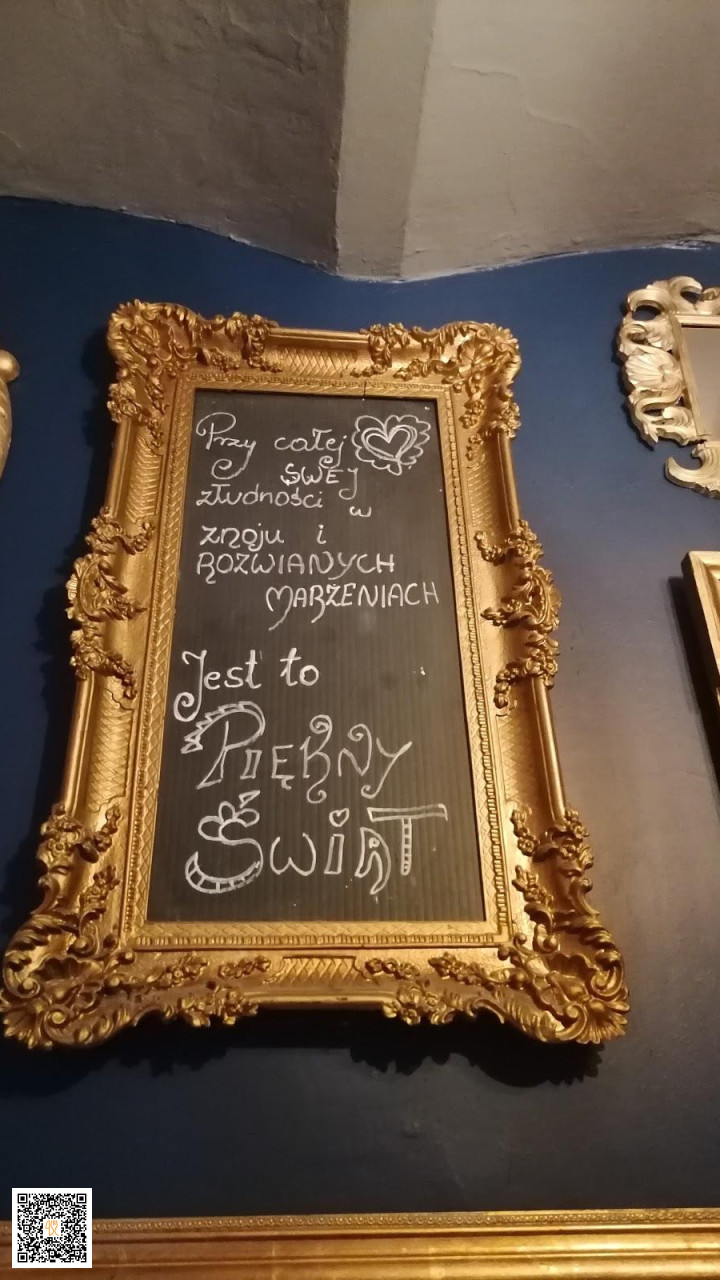 Przy całej
SWEJ
złudności w
znoju i
ROZWIANYCH
MARZENIACH
Jest to
PIĘKNY
ŚWIAT